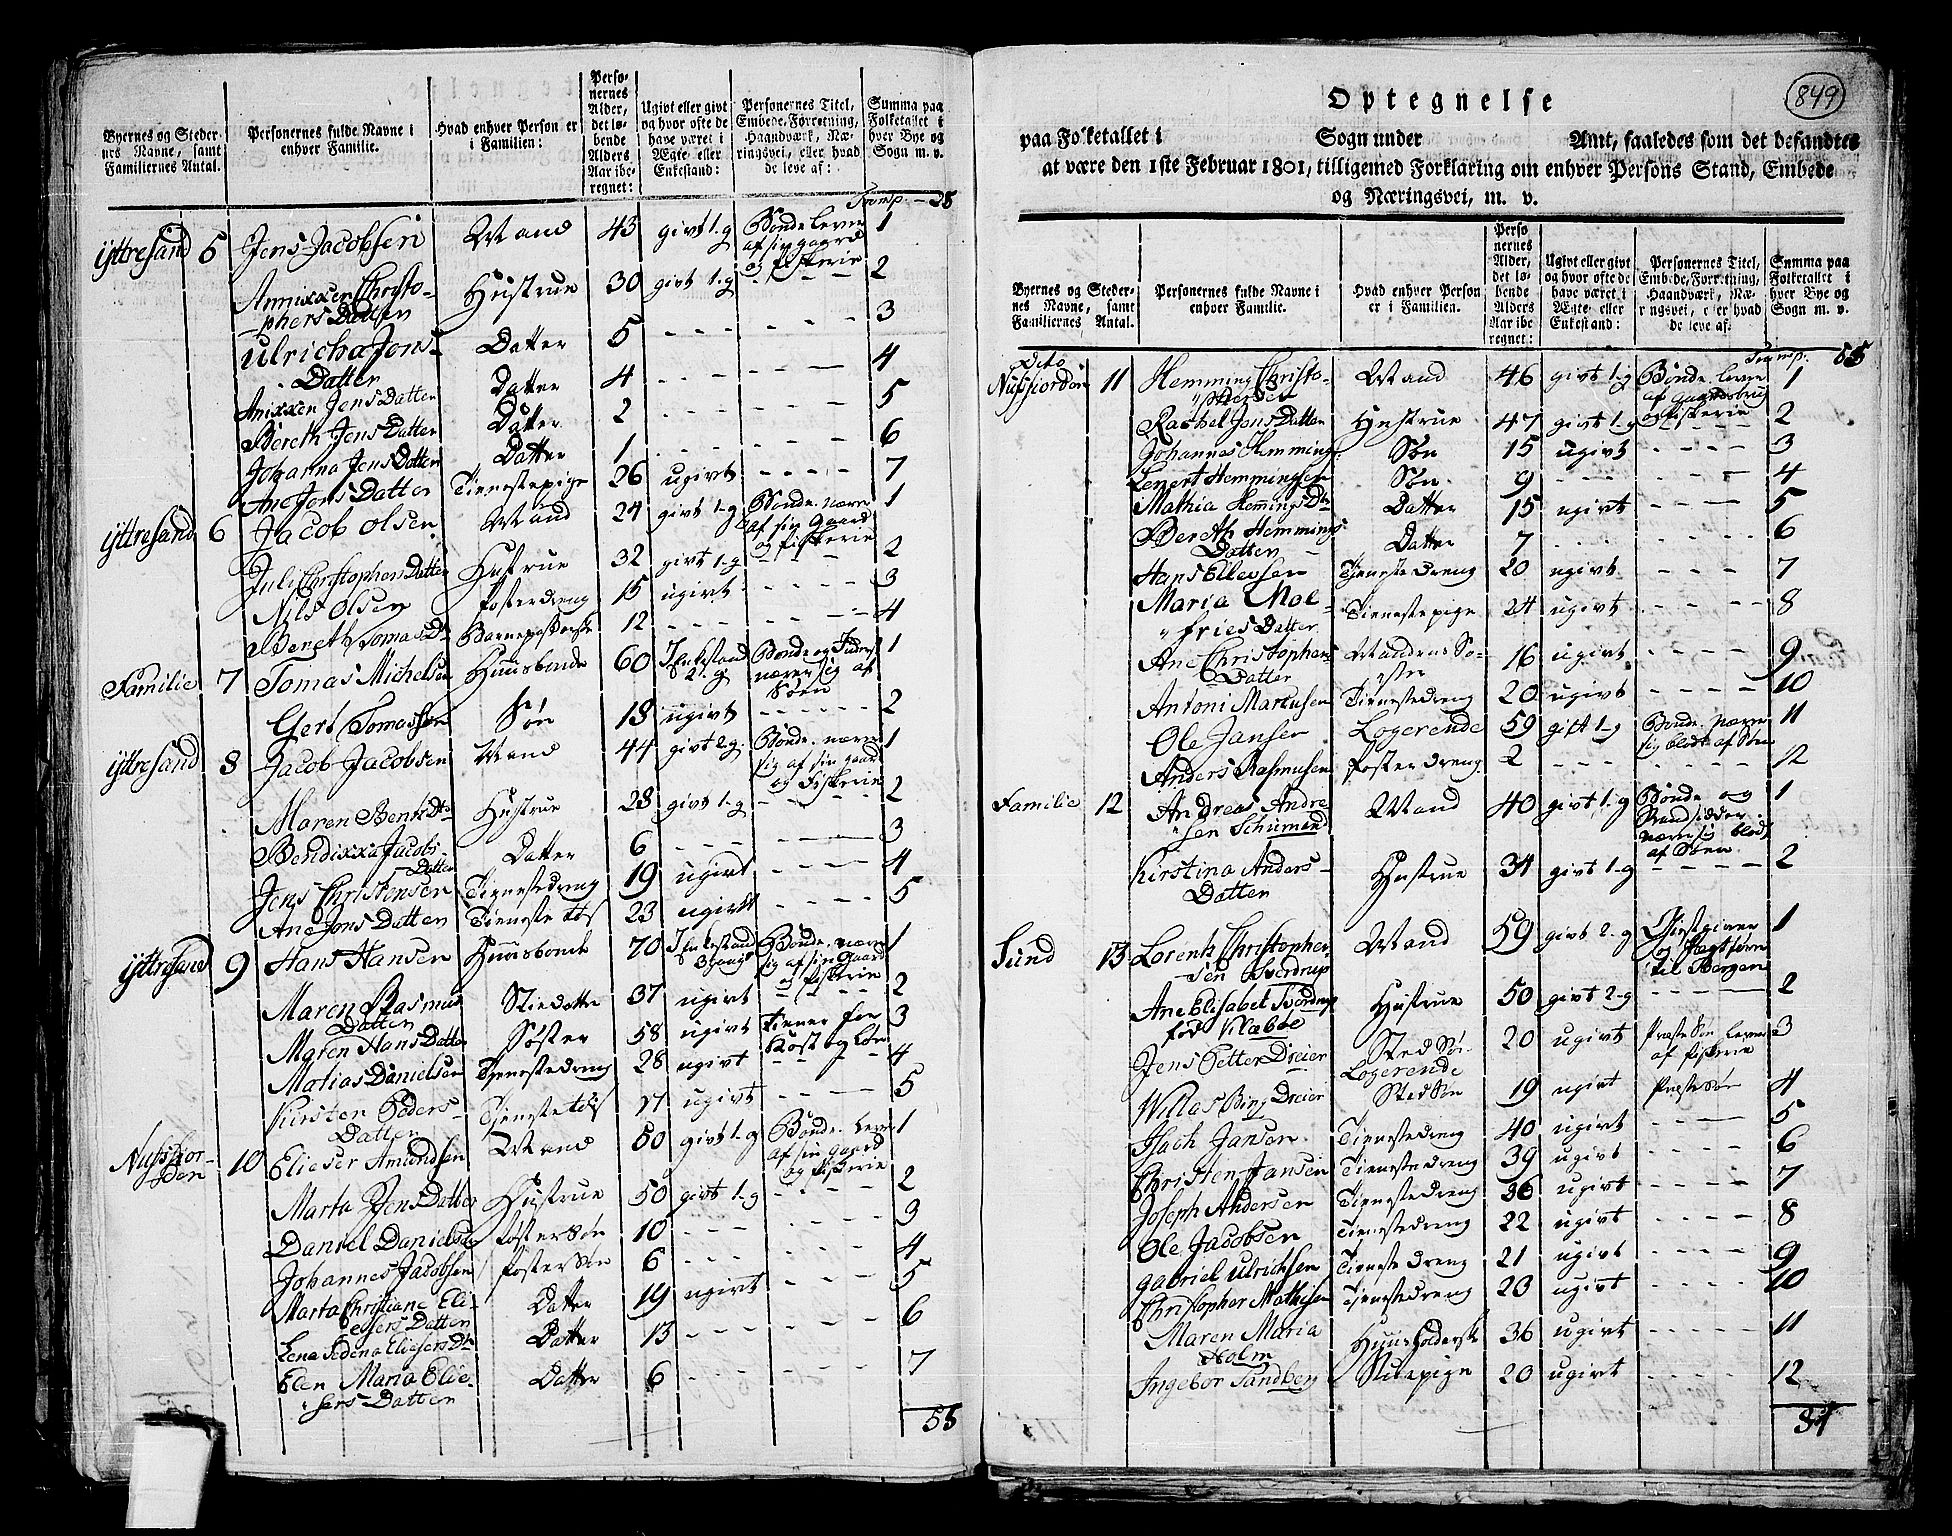 Byernes og Steder-
nes Navne, samt
Familiernes Antal.
Personernes fulde Navne i
enhver Familie.
Hvad enhver Person er
i Familien:
Perso-
nernes
Alder,
det lø-
bende
Alders
Aar ibe-
regnet:
Ugivt eller givt
og hvor ofte de
have været i
Ægte- eller
Enkestand:
Personernes Titel,
Embede, Forretning,
Haandværk, Næ-
ringsvei, eller hvad
de leve af:
Summa paa
Folketallet i
hver Bye og
Sogn m. v.
Transp. 28
Yttresand 5 Jens Jacobsen Mand 43 givt 1-g Bonde. lever 1
af sin gaard
og fiskerie
Annixxen Christo- Hustrue 30 givt 1-g - - - 2
-phers Datter
Ulricha Jens- Datter 5 - - - 3
Datter
Anixxen Jens Datter Datter 4 - - - 4
Bereth Jens Datter Datter 2 - - - 5
Johanna Jens Datter Datter 1 - - - 6
Ane Jens Datter Tienestepige 26 ugivt - - - 7
Yttresand 6 Jacob Olsen Mand 24 givt 1-g Bonde. nærer 1
af sin Gaard
og fiskerie
Juli Christophers Datter Hustrue 32 givt 1-g - - - 2
Nils Olsen foster dreng 15 ugivt - - - 3
Bereth Tomas Dr 12 - - - 4
Familie 7 Tomas Michelsen Huusbonde 60 I Enkestand Bonde og 1
2. g nærer sig af
Søen
Gert Tomassen Søn 18 ugivt - - - 2
Yttresand 8 Jacob Jacobsen Mand 44 givt 2-g. Bonde. nærer 1
sig af sin gaard
og Fiskerie
Maren Bents Dr Hustrue 28 givt 1-g - - - 2
Bendixxa Jacobs- Datter 6 - - - 3
Datter
Jens Christensen Tienestedreng 19 ugivt - - - 4
Ane Jens Datter Tieneste tøs 23 ugivt - - - 5
Yttresand 9 Hans Hansen Huusbonde 70 I Enkestand Bonde. nærer 1
3 gang sig af sin Gaard
og fiskerie
Maren Rasmus Stiedatter 37 ugivt - - - 2
Datter
Maren Hans Datter Søster 58 ugivt tiener for 3
Kost og Løn
Matias Danielsen Tjenestedreng 28 ugivt - - 4
Kirsten Peders- Tjeneste tøs 17 ugivt - - - 5
Datter
Nussfior- 10 Elieser Amundsen Mand 50 givt 1-g Bonde. lever 1
den af sin gaard
og fiskerie
Marta Jens Datter Hustrue 50 givt 1-g - - - 2
Daniel Danielsen foster Søn 10 - - - 3
Johannes Jacobsen foster Søn 6 - - - 4
Marta Christiane Eli- Datter 19 ugivt - - - 5
esers Datter
Lena Sedena Eliesers Dr Datter 13 - - - 6
Elen Maria Elie- Datter 6 - - - 7
sers Datter
55
849
Optegnelse
paa Folketallet i Sogn under Amt, saaledes som det befandtes
at være den 1ste Februar 1801, tilligemed Forklaring om enhver Persons Stand, Embede
og Næringsvei, m. v.
Byernes og Steder-
nes Navne, samt
Familiernes Antal.
Personernes fulde Navne i
enhver Familie.
Hvad enhver Person
er i Familien.
Perso
nernes
Alder,
det lø-
bende
Alders
Aar ibe
regnet:
Ugivt eller givt
og hvor ofte de
have været i
Ægte- eller
Enkestand:
Personernes Titel,
Embede, Forretning,
Haandværk, Næ-
ringsvei, eller hvad
de leve af:
Summa paa
Folketallet i
hver Bye og
Sogn m. v.
Transp. 55
Dito
Nussfiorden 11 Hemming Christo- Mand 46 givt 1-g Bonde. lever 1
phersen af gaardsbrug
og fiskerie
Rachel Jens Datter Hustrue 47 givt 1-g - - - 2
Johannes Hemming. Søn 15 ugivt - - - 3
Lenert Hemmingsen Søn 9 - - - 4
Mathia Hemmings Dr Datter 15 ugivt - - - 5
Bereth Hemmings Datter 7 - - - 6
Datter
Hans Ellevsen Tjeneste dreng 20 ugivt - - - 7
Maria Moe- Tienestepige 24 ugivt - - - 8
fries Datter
Ane Christophers Mandens Sø- 16 ugivt - - - 9
Datter ster
Antoni Markusen Tienestedreng 20 ugivt - - - 10
Ole Jansen Logerende 59 gift 1-g Bonde. nærer 11
sig blot af Søen
Anders Rasmusen foster dreng 2 - - - 12
Familie 12 Andreas Andre Mand 40 givt 1-g Bonde og 1
sen Schumand Strandsidder
nærer sig blot
af Søen.
Kirstina Anders- Hustrue 34 givt 1-g - - - 2
Datten
Sund 13 Lorents Christopher- Mand 59 givt 2-g Giestgiver 1
sen Sverdrup og Jægtfører
til Bergen
Ane Elisabet Sverdrup Hustrue 50 givt 2-g - - - 2
fød Klæboe
Jens Petter Dreier Sted Søn 20 ugivt Præste Søn lever 3
Logerende af fiskerie
Willas Bing Dreier Sted Søn 19 ugivt Præste Søn 4
Isach Jansen Tienestedreng 40 ugivt - - - 5
Christen Jansen Tienestedreng 39 ugivt - - - 6
Joseph Andersen Tienestedreng 36 ugivt - - - 7
Ole Jacobsen Tienestedreng 22 ugivt - - - 8
Gabriel Ulrichsen Tieneste dreng 21 ugivt - - - 9
Christopher Mathisen Tjenestedreng 20 ugivt - - - 10
Maren Maria Huusholderske 36 ugivt - - - 11
Holm
Ingebor Sandberg Stuepige 20 ugivt - - - 12
81